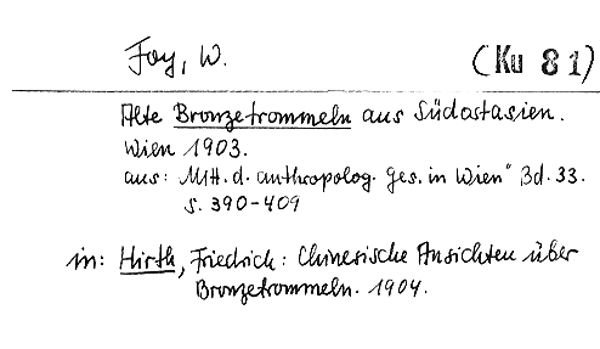 Foy, W.
(Ku 81)
Alte Bronzetrommeln aus Südostasien.
Wien 1903.
aus: „Mitt. d. anthropolog. Ges. in Wien" Bd. 33.
S. 390-409
in: Hirth, Friedrich: Chinesische Ansichten über
Bronzetrommeln. 1904.